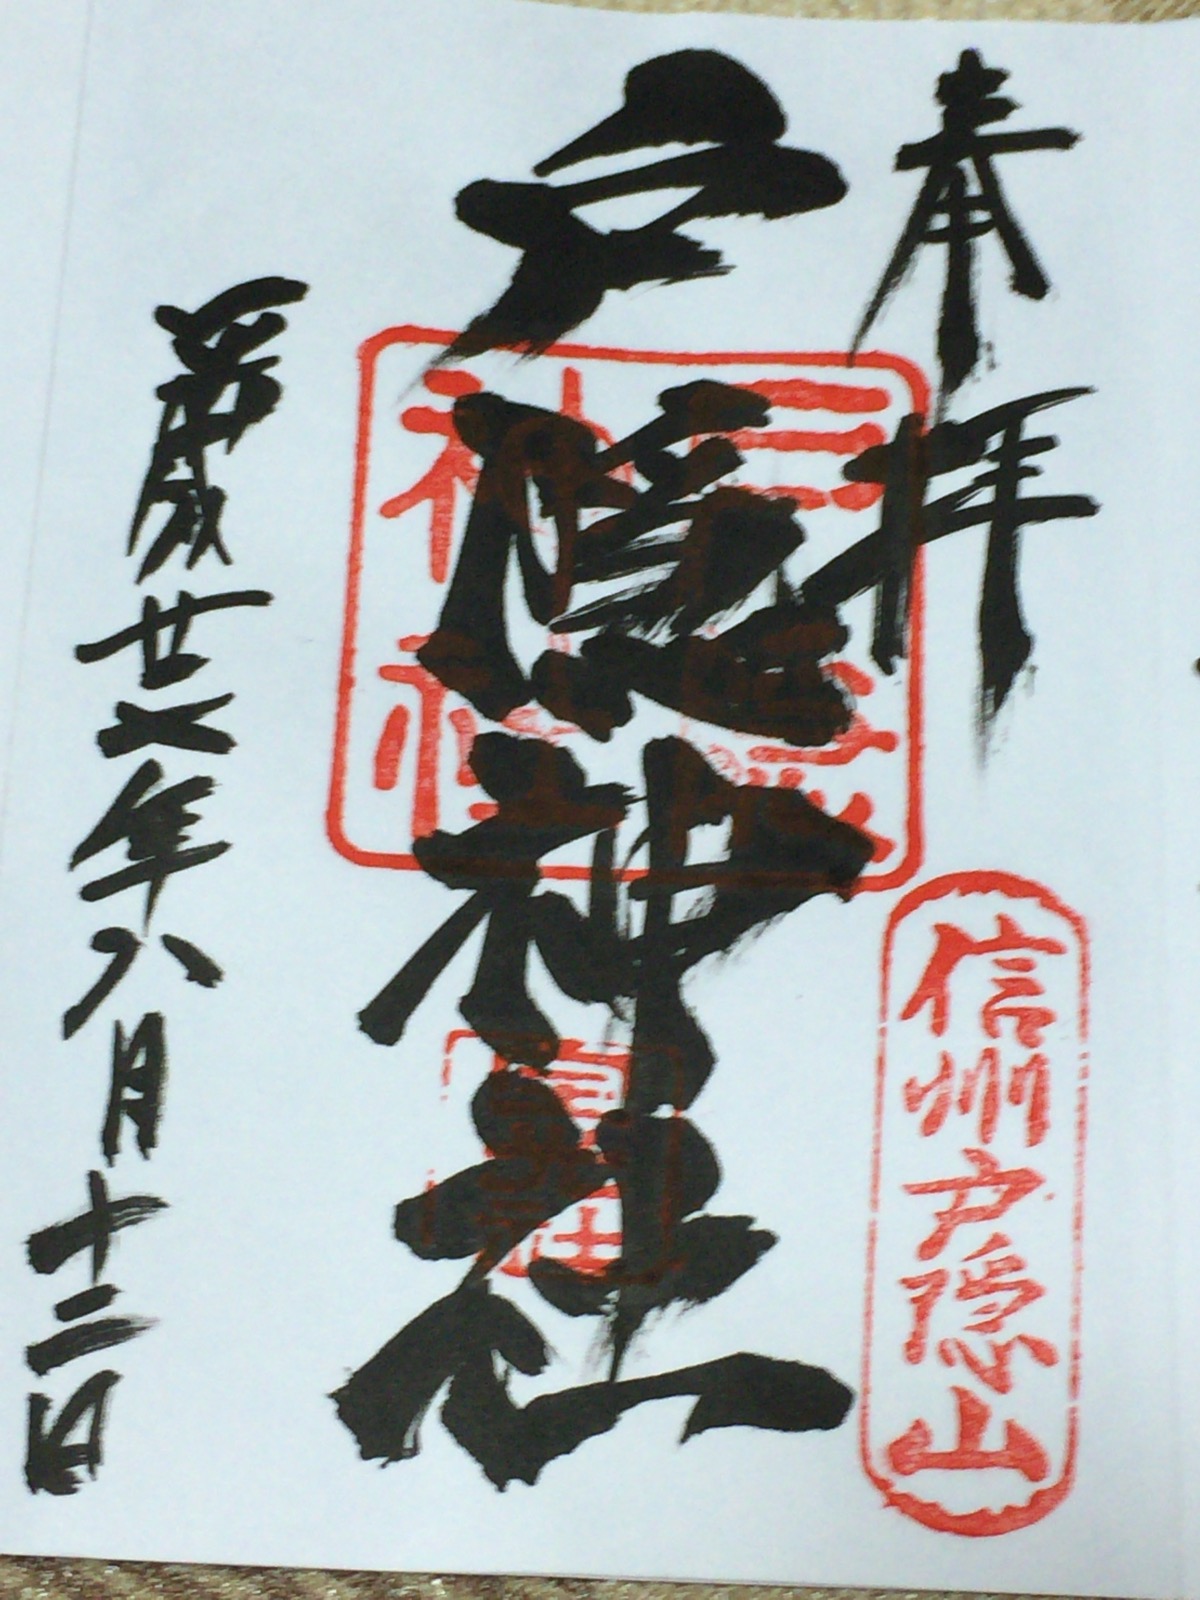 奉拝
信州戸隠山
戸隠神社
平成廿六年八月十二日